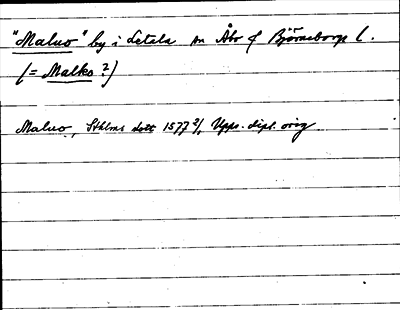 "Maluo" by i Letala sn Åbo & Björneborgs l.
(= Malko?)
Maluo, Sthlms slott 1577 2/, Upps. dipl. orig.